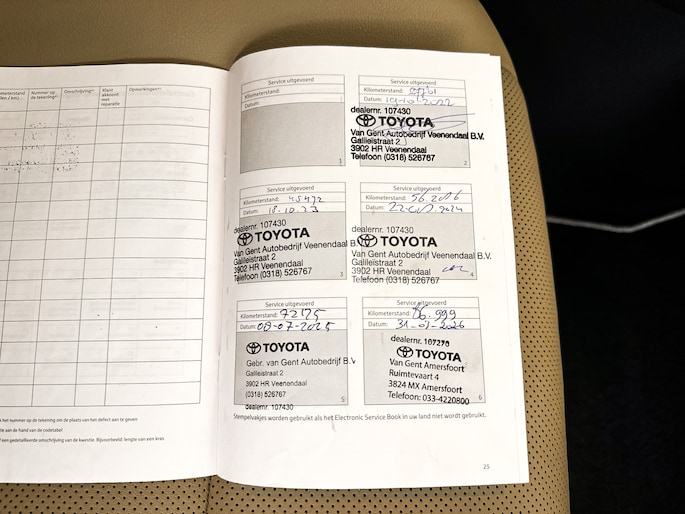 Nummer op de tekening
Omschrijving
Klant akkoord met reparatie
Opmerkingen
het nummer op de tekening om de plaats van het defect aan te geven
aan de hand van de codetabel
gedetailleerde omschrijving van de kwestie. Bijvoorbeeld: lengte van een kras
Service uitgevoerd
Kilometerstand:
Datum:
1
Service uitgevoerd
Kilometerstand:
Datum: 19-10-2022
dealernr. 107430
TOYOTA
Van Gent Autobedrijf Veenendaal B.V.
Galileistraat 2
3902 HR Veenendaal
Telefoon (0318) 526767
2
Service uitgevoerd
Kilometerstand: 45472
Datum: 18.10.23
dealernr. 107430
TOYOTA
Van Gent Autobedrijf Veenendaal B.V.
Galileistraat 2
3902 HR Veenendaal
Telefoon (0318) 526767
3
Service uitgevoerd
Kilometerstand: 56.206
Datum: 2024
dealernr. 107430
TOYOTA
Van Gent Autobedrijf Veenendaal B.V.
Galileistraat 2
3902 HR Veenendaal
Telefoon (0318) 526767
4
Service uitgevoerd
Kilometerstand: 72175
Datum: 08-07-2025
TOYOTA
Gebr. van Gent Autobedrijf B.V.
Galileistraat 2
3902 HR Veenendaal
(0318) 526767
dealernr. 107430
5
Service uitgevoerd
Kilometerstand: 86.999
Datum: 31-03-2026
dealernr. 107270
TOYOTA
Van Gent Amersfoort
Ruimtevaart 4
3824 MX Amersfoort
Telefoon: 033-4220800
6
Stempelvakjes worden gebruikt als het Electronic Service Book in uw land niet wordt gebruikt.
25